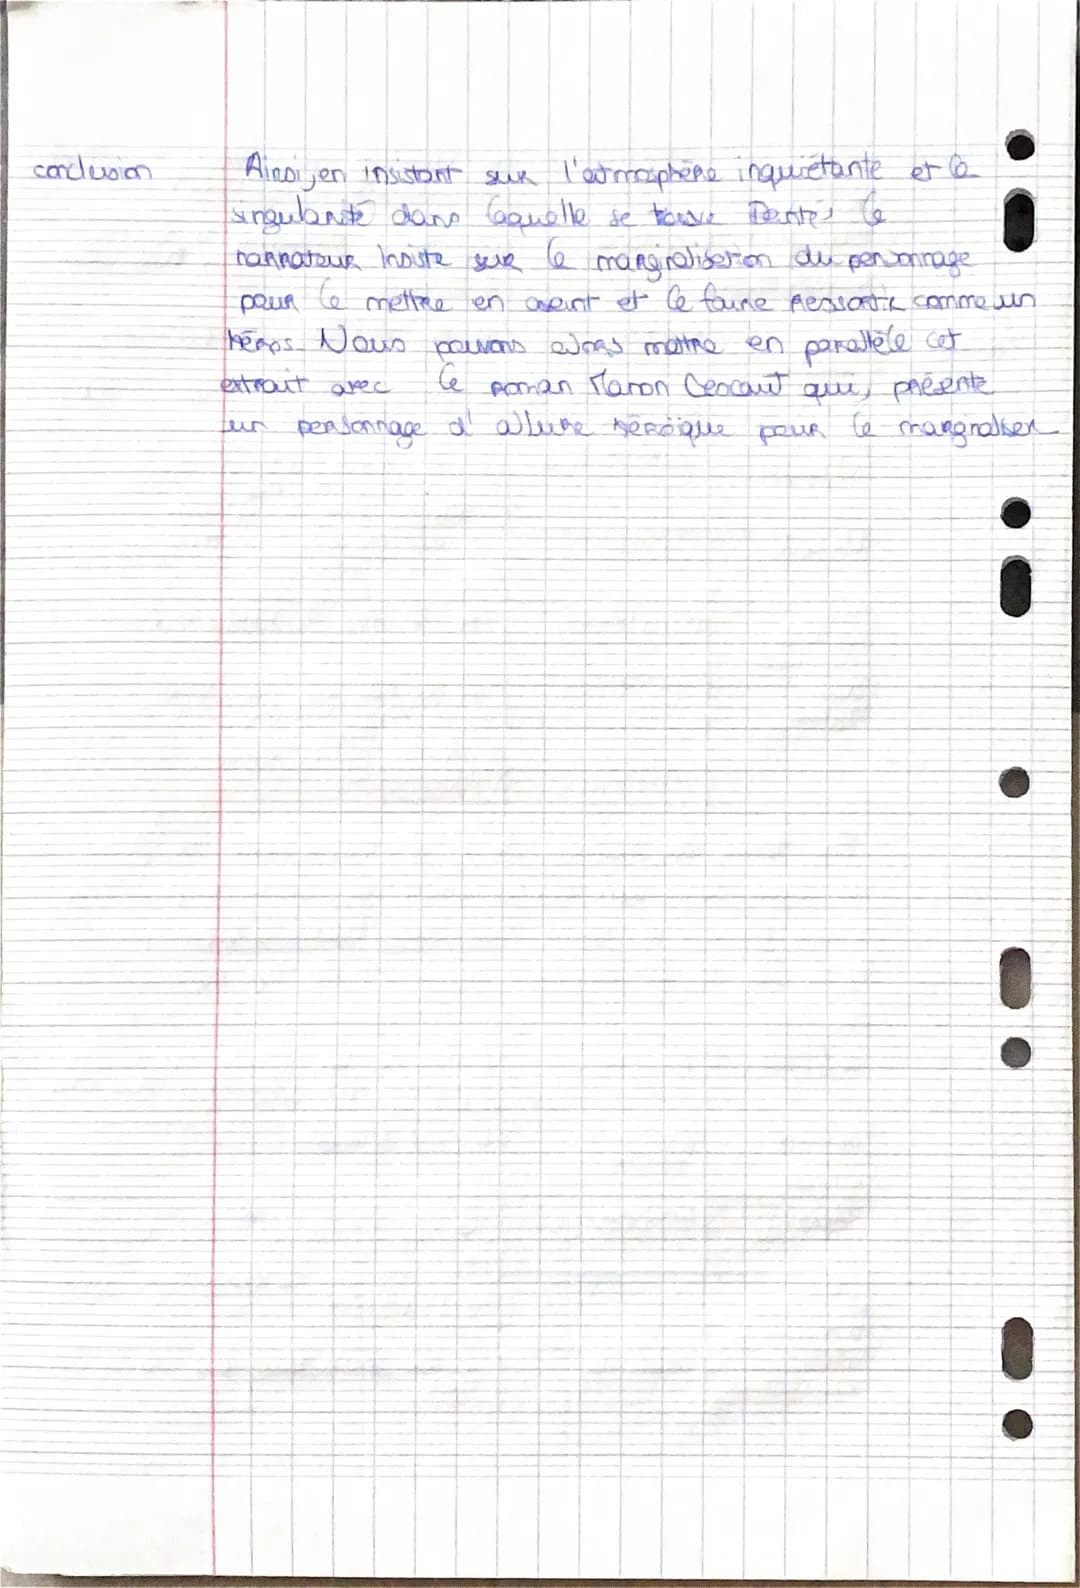 conclusion
Ainsi, en insistant sur l'atmosphère inquiétante et la
singularité dans laquelle se trouve Dantès le
narrateur insiste sur la marginalisation du personnage
pour le mettre en avant et le faire ressortir comme un
héros. Nous pouvons alors mettre en parallèle cet
extrait avec le roman Manon Lescaut qui, présente
un personnage d'allure héroïque pour le marginaliser